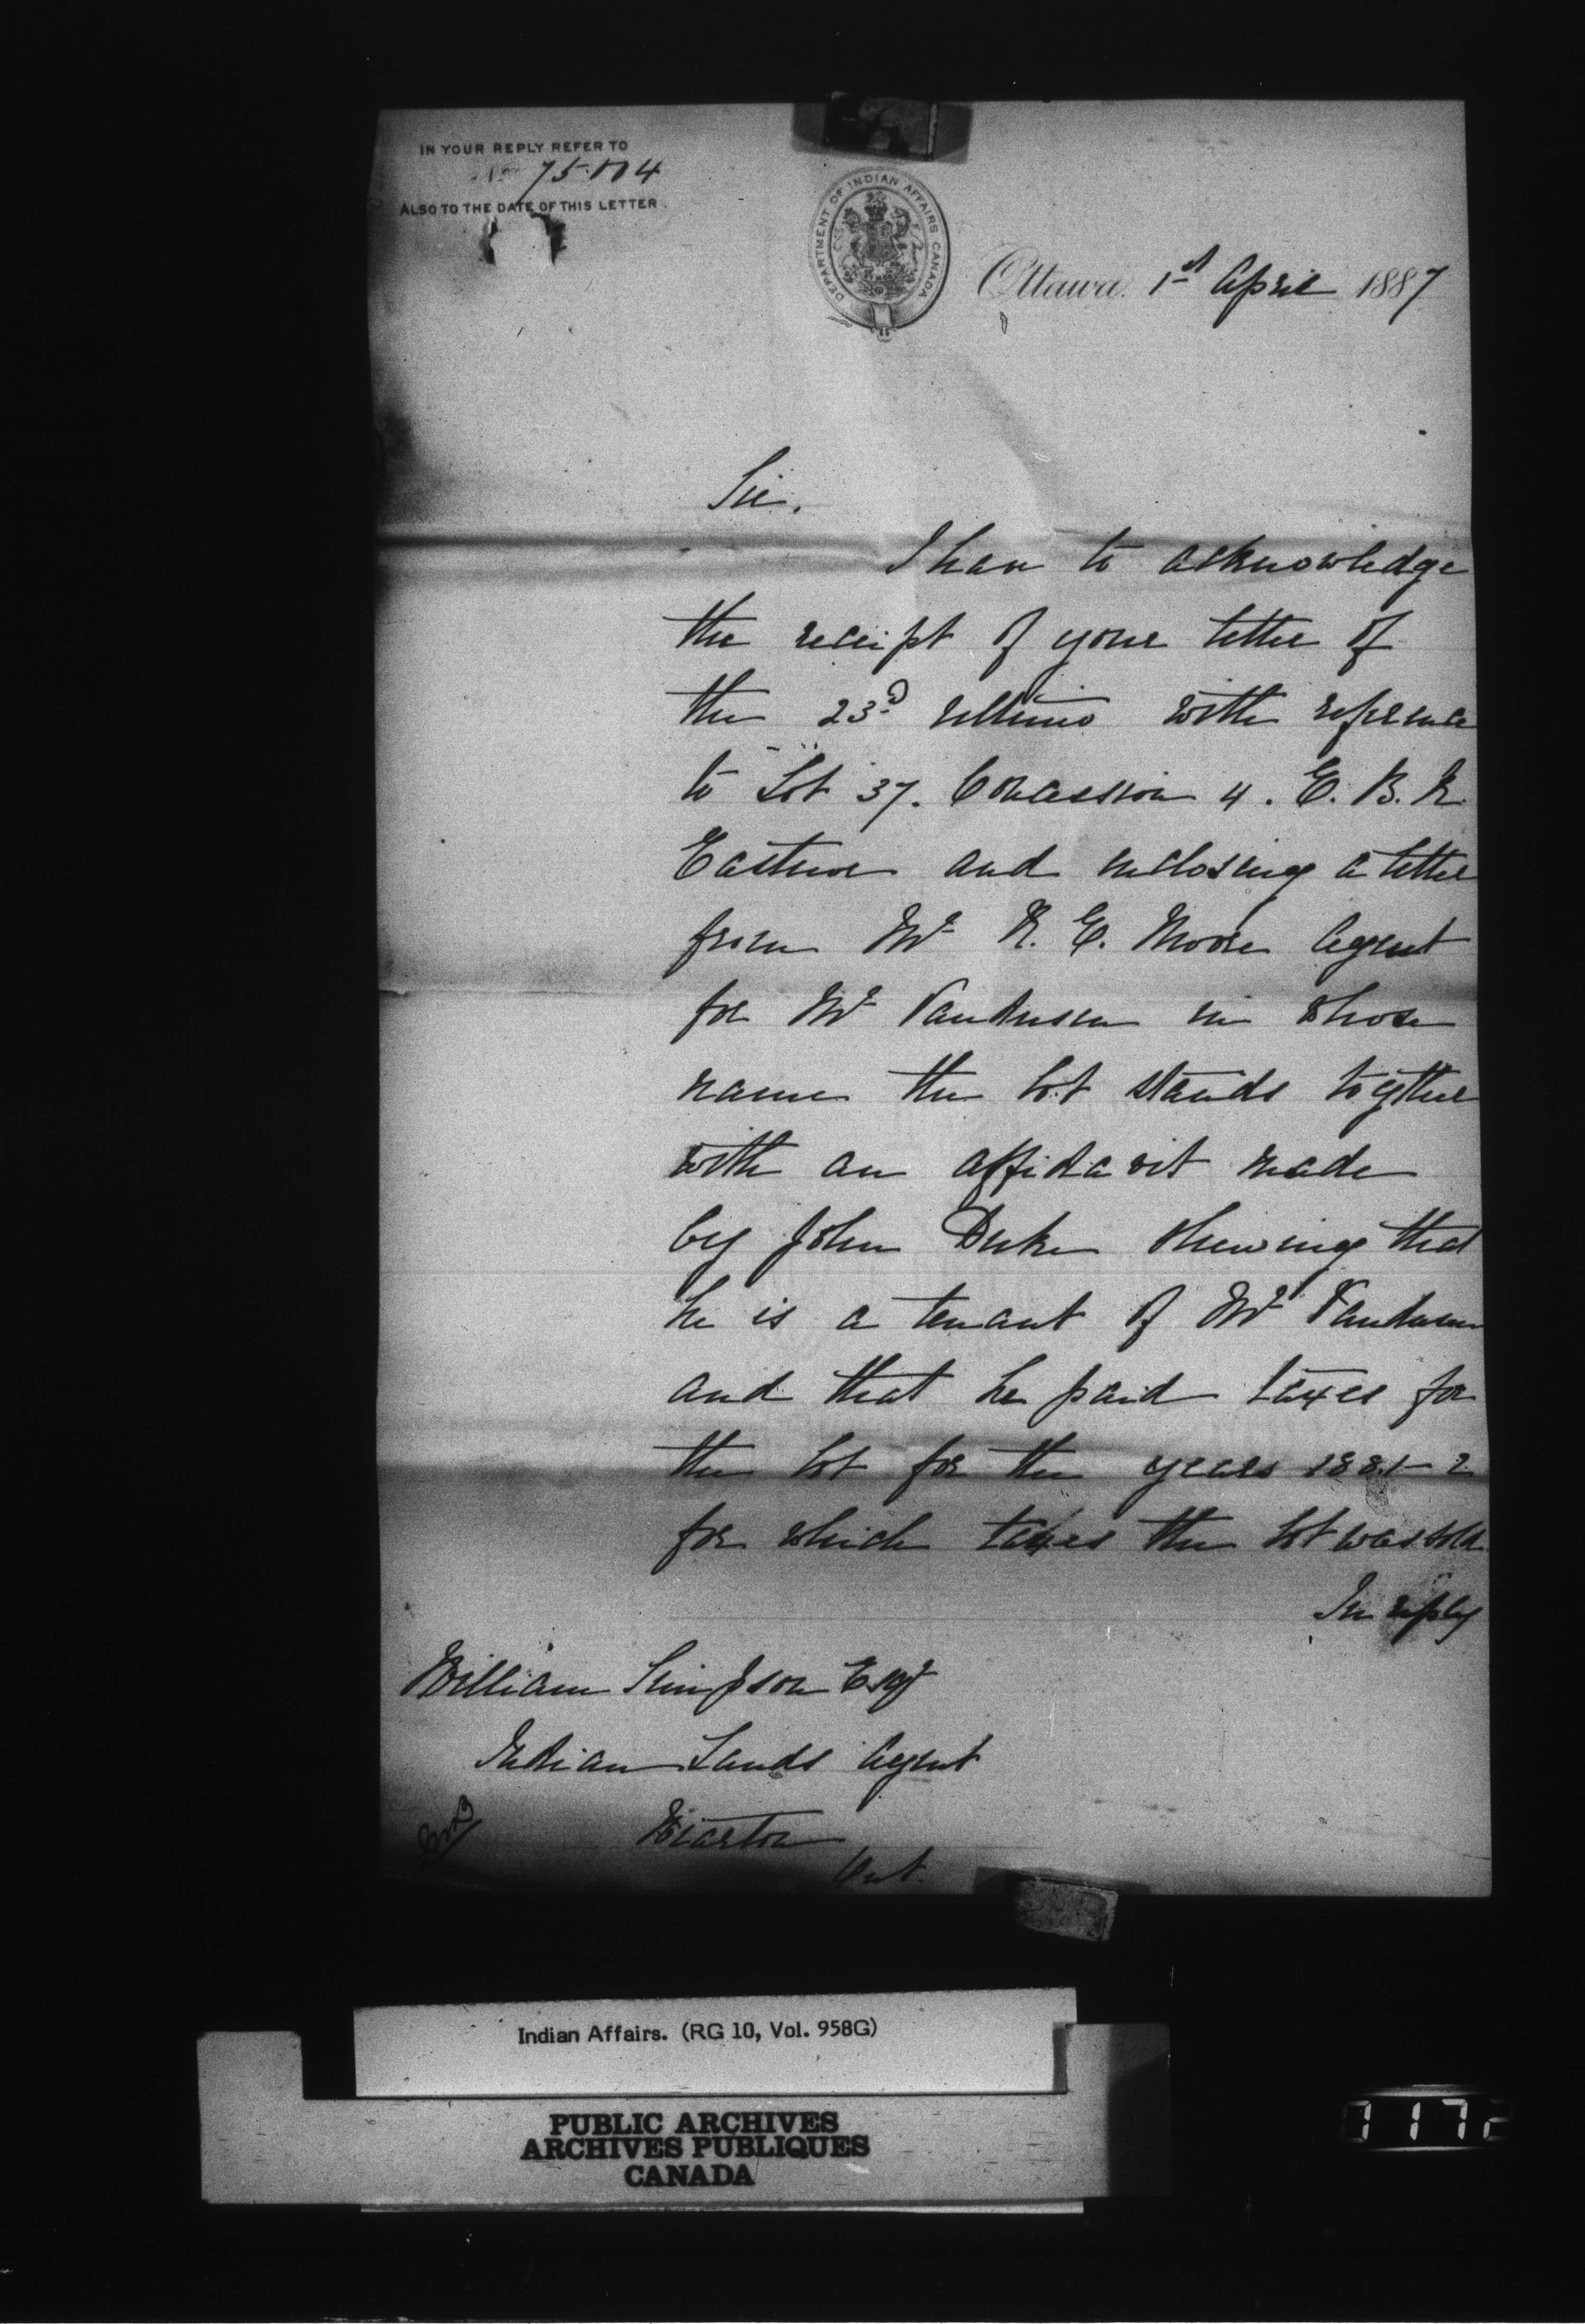 IN YOUR REPLY REFER TO
No 75.004
ALSO TO THE DATE OF THIS LETTER.
DEPARTMENT OF INDIAN AFFAIRS CANADA
Ottawa. 1st April 1887
Sir,
I have to acknowledge
the receipt of your letter of
the 23d ultimo with reference
to Lot 37. Concession 4. E. B. R.
Eastnor and inclosing a letter
from Mr R. E. Moore Agent
for Mr Vandusen in whose
name the lot stands together
with an affidavit made
by John Duke shewing that
he is a tenant of Mr Vandusen
and that he paid taxes for
the lot for the years 1881-2
for which taxes the lot was sold.
In reply
William Simpson Esqr
Indian Lands Agent
Wiarton
Ont.
Indian Affairs. (RG 10, Vol. 958G)
PUBLIC ARCHIVES
ARCHIVES PUBLIQUES
CANADA
1172